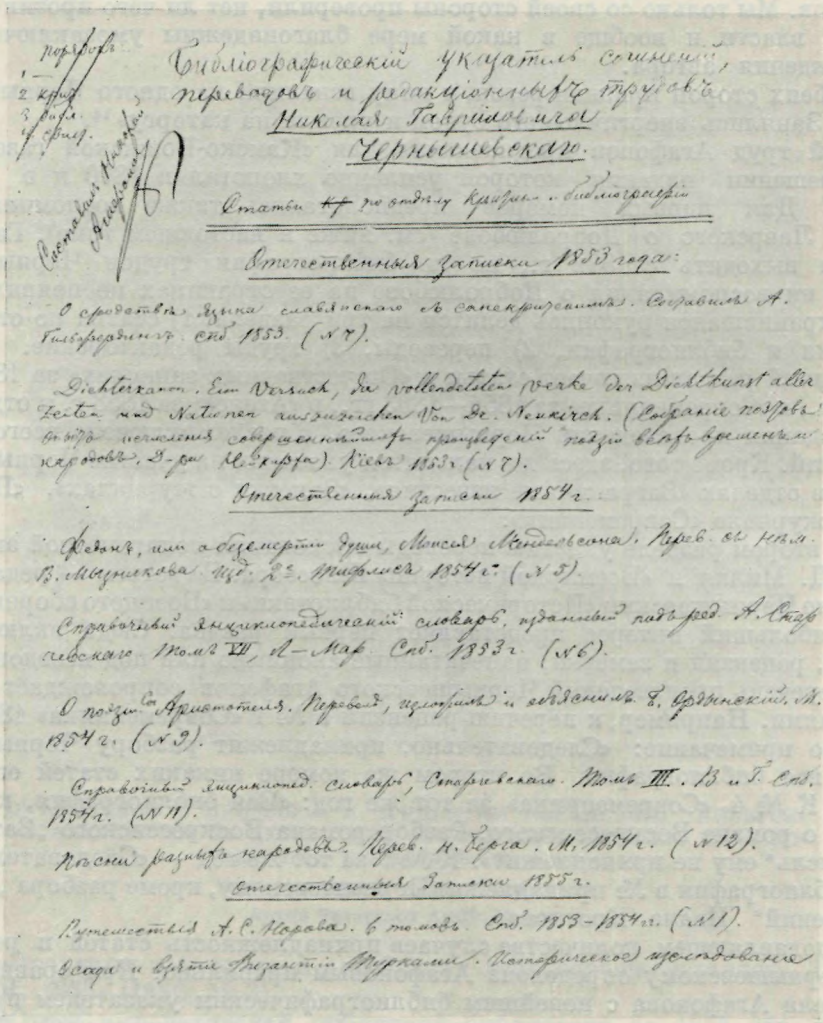 порядокъ
1 —
2 крит.
3 библ.
4
Составилъ Николай
Агафоновъ
Библіографическій указатель сочиненій,
переводовъ и редакціонныхъ трудовъ
Николая Гавриловича
Чернышевскаго.
Статьи по отдѣлу критики и библіографіи
Отечественныя записки 1853 года:
О сродствѣ языка славянскаго съ санскритскимъ. Составилъ А.
Гильфердингъ. Спб. 1853. (№ 7).
Dichterkanon. Ein Versuch, die vollendetsten Werke der Dichtkunst aller
Zeiten und Nationen auszuzeichen Von Dr. Neukirch. (Собраніе поэтовъ
опытъ исчисленія совершеннѣйшихъ произведеній поэзіи всѣхъ временъ и
народовъ. Д-ра Нейкирха). Кіевъ 1853 г. (№ 7).
Отечественныя записки 1854 г.
Федонъ, или о безсмертіи души, Моисея Мендельсона. Перев. съ нѣм.
В. Мызникова изд. 2е. Тифлисъ 1854 г. (№ 5)
Справочный энциклопедическій словарь, изданный подъ ред. А. Стар
чевскаго Томъ VII, Л—Мар. Спб. 1853 г. (№ 6).
О поэзіи Соч Аристотеля. Перевелъ, изложилъ и объяснилъ Б. Ордынскій. М.
1854 г. (№ 9).
Справочный энциклопед. словарь, Старчевскаго. Томъ III. В и Г. Спб.
1854 г. (№ 11).
Пѣсни разныхъ народовъ. Перев. Н. Берга. М. 1854 г. (№ 12).
Отечественныя Записки 1855 г.
Путешествія А. С. Норова. 5 томовъ. Спб. 1853–1854 г. (№ 1).
Осада и взятіе Византіи Турками. Историческое изслѣдованіе